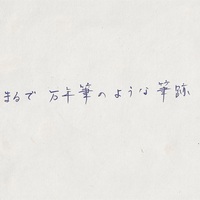 まるで 万年筆のような筆跡